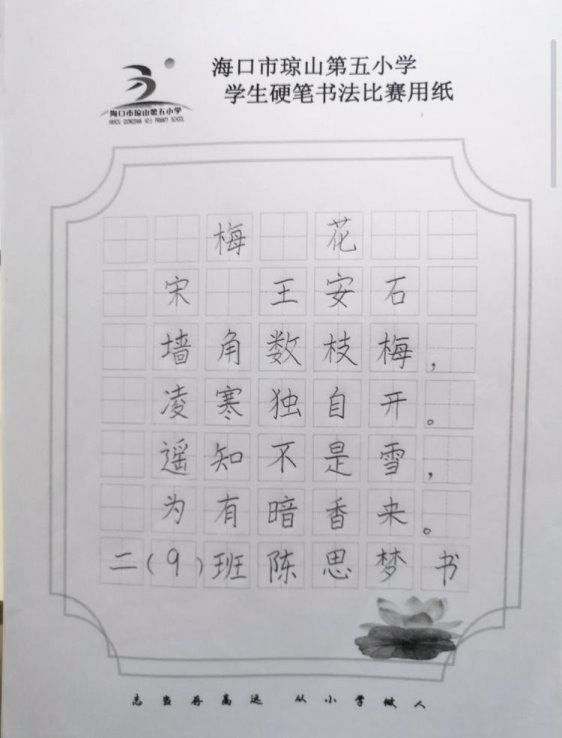 海口市琼山第五小学
学生硬笔书法比赛用纸
海口市琼山第五小学
梅 花
宋 王安石
墙角数枝梅，
凌寒独自开。
遥知不是雪，
为有暗香来。
二(9)班陈思梦书
志当存高远 从小学做人